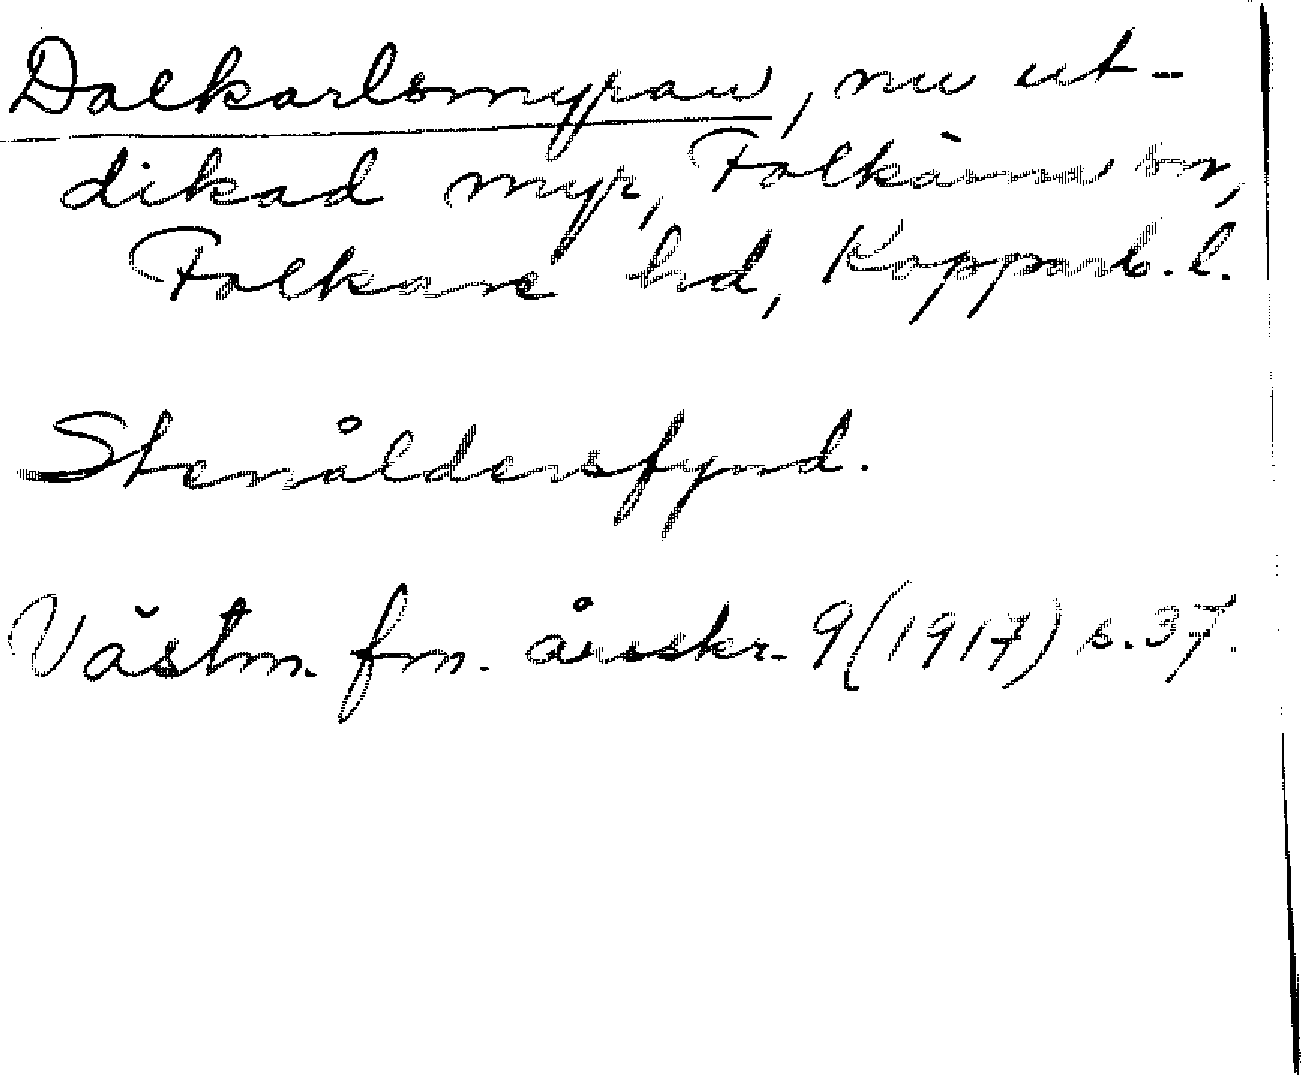 Dalkarlsmyran, nu ut-
dikad myr, Folkärna sn,
Folkare hd, Kopparb. l.
Stenåldersfynd.
Västm. fm. årsskr. 9 (1917) s. 37.